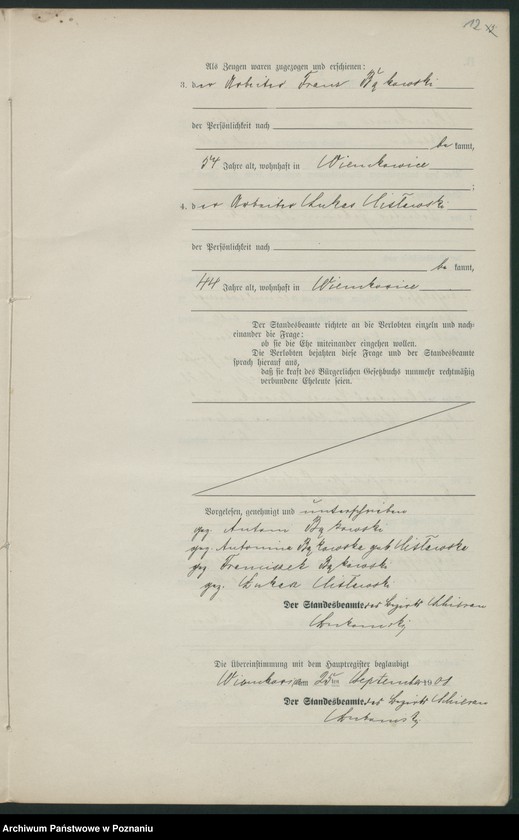 12
Als Zeugen waren zugezogen und erschienen:
3. der Arbeiter Franz Bąkowski
der Persönlichkeit nach
be kannt,
54 Jahre alt, wohnhaft in Wienkowice
;
4. der Arbeiter Lukas Cislewski
der Persönlichkeit nach
be kannt,
44 Jahre alt, wohnhaft in Wienkowice
Der Standesbeamte richtete an die Verlobten einzeln und nach-
einander die Frage:
ob sie die Ehe miteinander eingehen wollen.
Die Verlobten bejahten diese Frage und der Standesbeamte
sprach hierauf aus,
daß sie kraft des Bürgerlichen Gesetzbuchs nunmehr rechtmäßig
verbundene Eheleute seien.
Vorgelesen, genehmigt und unterschrieben
gez. Antoni Bąkowski
gez. Antonina Bąkowska geb Cislewska
gez Franciszek Bąkowski
gez. Lukas Cislewski
Der Standesbeamte des Bezirks
Die Übereinstimmung mit dem Hauptregister beglaubigt
am 25ten September 1901
Der Standesbeamte des Bezirks
Archiwum Państwowe w Poznaniu